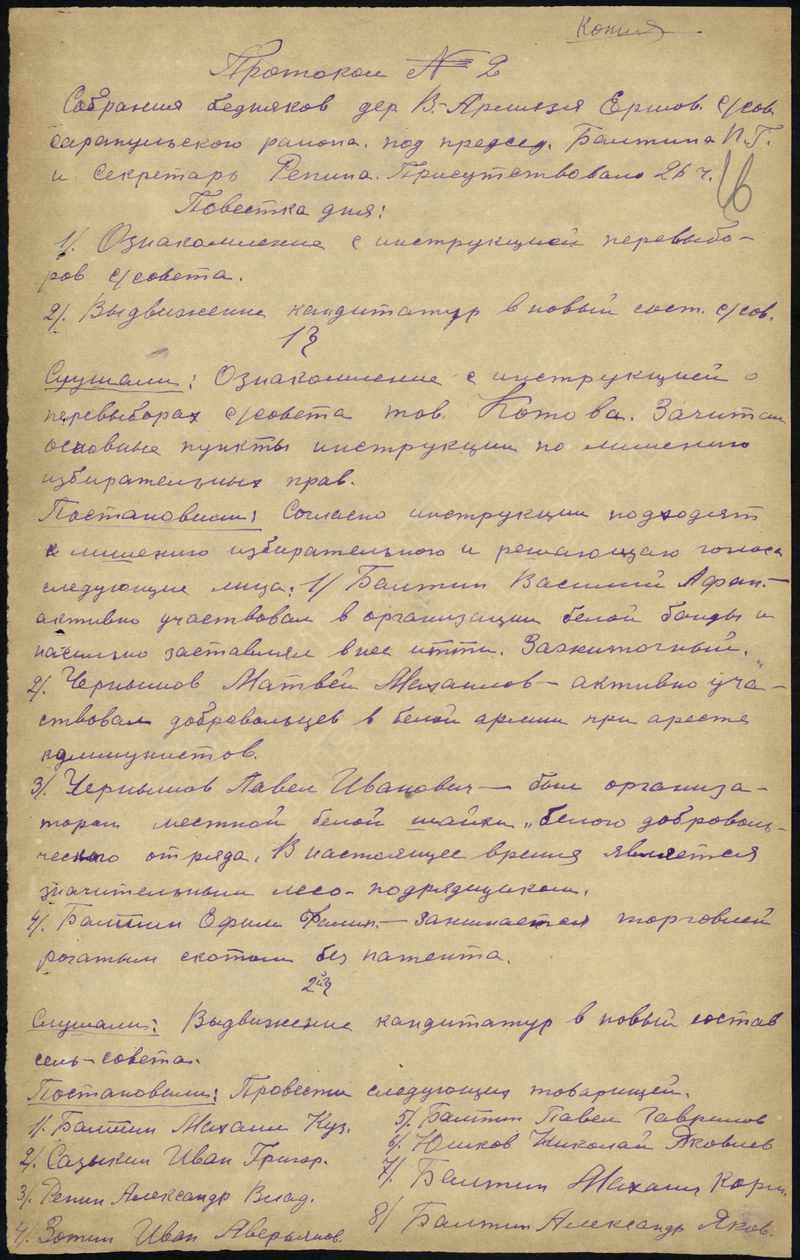 Копия
Протокол № 2
Собрания бедняков дер В.-Армязя Ершов. с/сов.
сарапульского района. под председ. Балтина П.Г.
и секретарь Репина. Присутствовало 26 ч.
16
Повестка дня:
1/. Ознакомление с инструкцией перевыбо-
ров с/совета.
2/. Выдвижение кандитатур в новый сост. с/сов.
1§
Слушали: Ознакомление с инструкцией о
перевыборах с/совета тов. Котова. Зачитал
основные пункты инструкции по лишению
избирательных прав.
Постановили: Согласно инструкции подходят
к лишению избирательного и решающаго голоса
следующие лица: 1/ Балтин Василий Афан.-
активно участвовал в организации белой банды и
насильно заставлял в нее итти. Зажиточный.
2/. Чернышов Матвей Михаилов - активно уча-
ствовал добровольцев в белой армии при аресте
коммунистов.
3/. Чернышов Павел Иванович - был организа-
тором местной белой шайки „белого доброволь-
ческого отряда. В настоящее время является
значительным лесо-подрядчиком.
4/. Балтин Ефим Филип. - занимается торговлей
рогатым скотом без патента.
2й§
Слушали: Выдвижение кандитатур в новый состав
сель-совета.
Постановили: Провести следующих товарищей.
1/. Балтин Михаил Куз.
2/. Сазыкин Иван Григор.
3/. Репин Александр Влад.
4/. Зотин Иван Аверьянов.
5/. Балтин Павел Гаврилов
6/. Юшков Николай Яковлев
7/. Балтин Михаил Корн.
8/ Балтин Александр Яков.